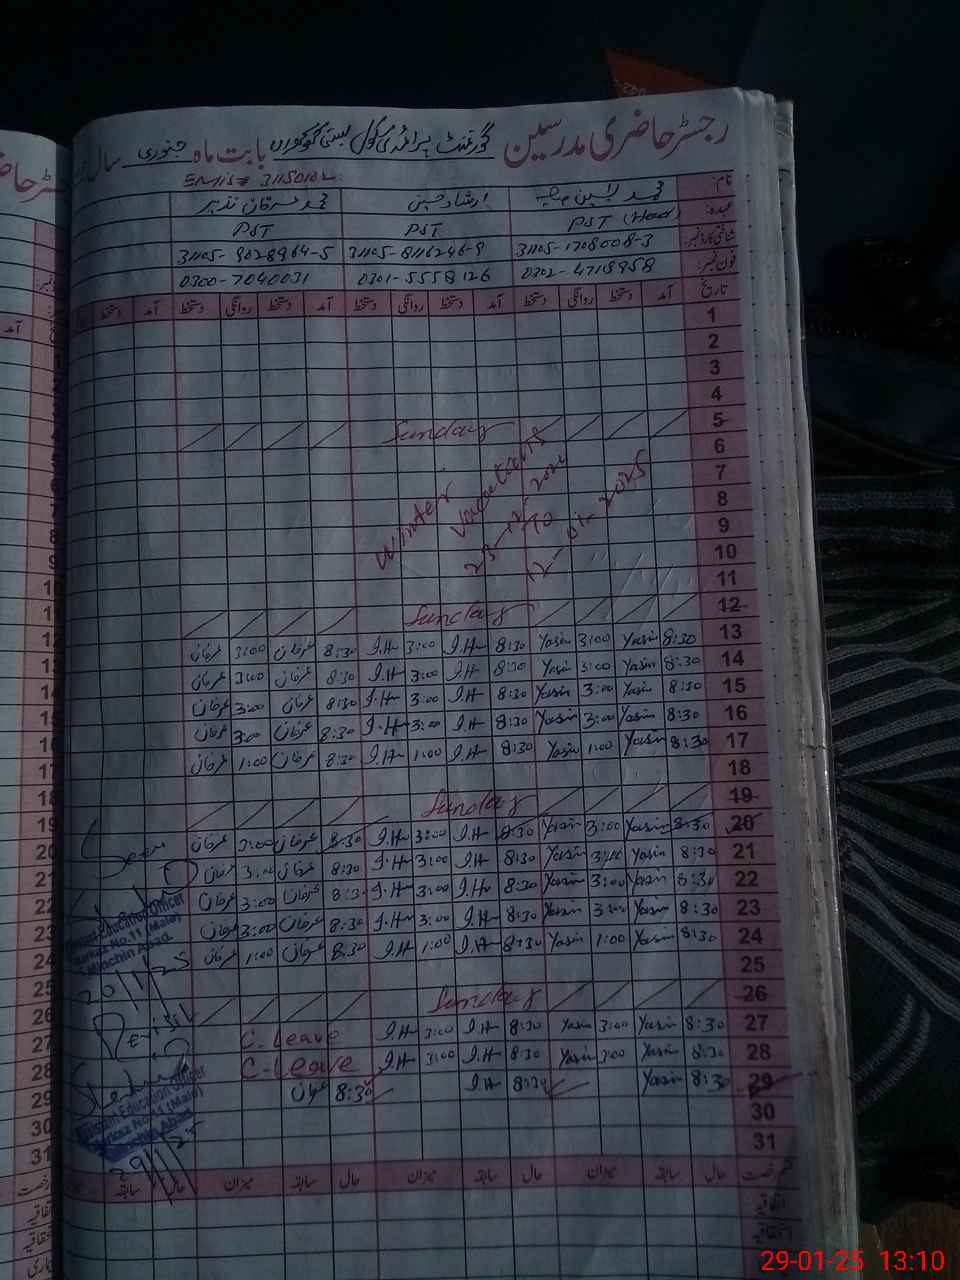 رجسٹر حاضری مدرسین گورنمنٹ پرائمری سکول بستی بابت ماہ جنوری سال
EMIS# 31150102
نام: محمد یٰسین ارشاد حسین محمد عرفان نذیر
عہدہ: PST (Head) PST PST
شناختی کارڈ نمبر: 31105-1708008-3 31105-8116246-9 31105-9028964-5
فون نمبر: 0302-4719958 0301-5558126 0300-7040031
تاریخ آمد دستخط روانگی دستخط آمد دستخط روانگی دستخط آمد دستخط روانگی دستخط آمد دستخط
1
2
3
4
5 Sunday
6
7
8
9
10
11
Winter Vacations
23-12-2024
To
12-01-2025
12 Sunday
13 8:30 Yasin 3:00 Yasin 8:30 I.H 3:00 I.H 8:30 عرفان 3:00 عرفان
14 8:30 Yasin 3:00 Yasin 8:30 I.H 3:00 I.H 8:30 عرفان 3:00 عرفان
15 8:30 Yasin 3:00 Yasin 8:30 I.H 3:00 I.H 8:30 عرفان 3:00 عرفان
16 8:30 Yasin 3:00 Yasin 8:30 I.H 3:00 I.H 8:30 عرفان 3:00 عرفان
17 8:30 Yasin 1:00 Yasin 8:30 I.H 1:00 I.H 8:30 عرفان 1:00 عرفان
18
19 Sunday
20 8:30 Yasin 3:00 Yasin 8:30 I.H 3:00 I.H 8:30 عرفان 3:00 عرفان
21 8:30 Yasin 3:00 Yasin 8:30 I.H 3:00 I.H 8:30 عرفان 3:00 عرفان
22 8:30 Yasin 3:00 Yasin 8:30 I.H 3:00 I.H 8:30 عرفان 3:00 عرفان
23 8:30 Yasin 3:00 Yasin 8:30 I.H 3:00 I.H 8:30 عرفان 3:00 عرفان
24 8:30 Yasin 1:00 Yasin 8:30 I.H 1:00 I.H 8:30 عرفان 1:00 عرفان
25
26 Sunday
27 8:30 Yasin 3:00 Yasin 8:30 I.H 3:00 I.H C.Leave
28 8:30 Yasin 3:00 Yasin 8:30 I.H 3:00 I.H C.Leave
29 8:30 Yasin 8:30 I.H 8:30 عرفان
30
31
Seen
Education Officer
Markaz No.11 (Male)
Minchin Abad
20/1/25
Education Officer
Markaz No.11 (Male)
Minchin Abad
29/1/25
قسم رخصت حال سابقہ میزان حال سابقہ میزان حال سابقہ میزان حال سابقہ
اتفاقیہ
29-01-25 13:10